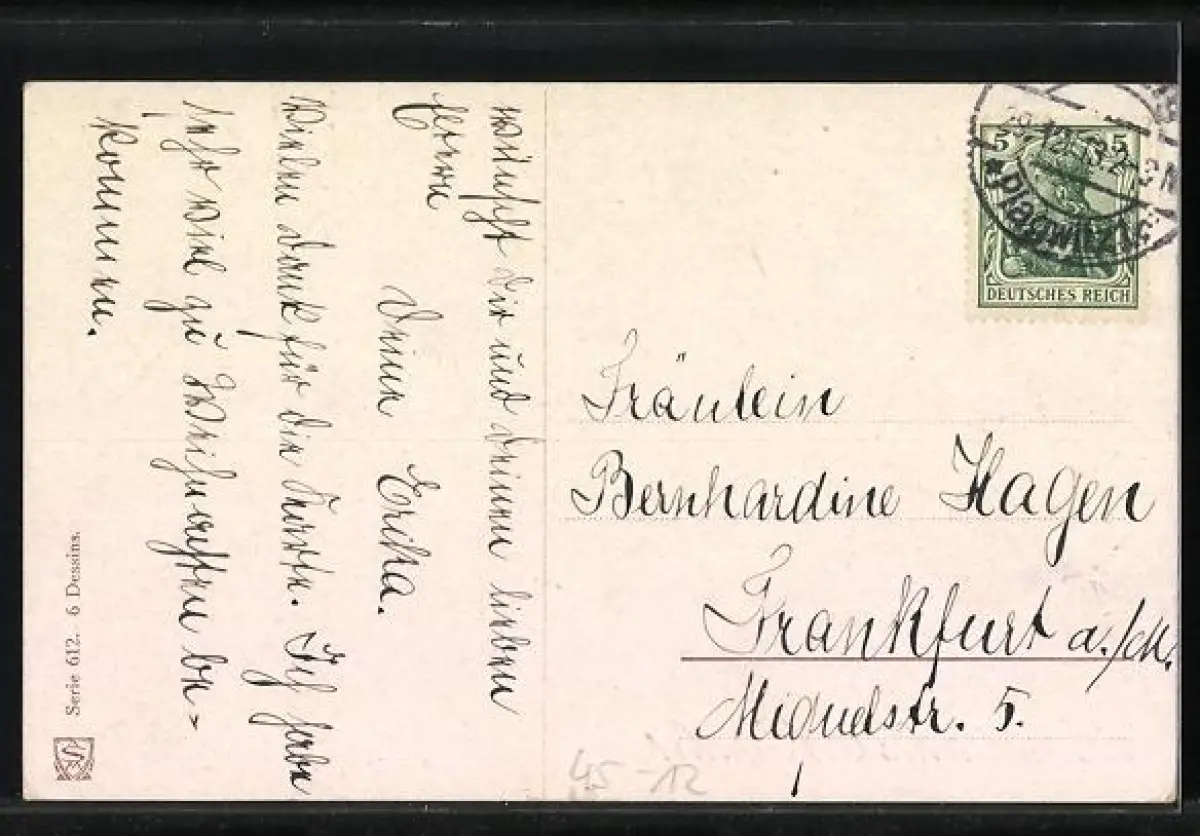 wünscht dir und deinen lieben
Eltern
Deine Erika.
Vielen Dank für die Karte. Ich habe
sehr viel zu Weihnachten be=
kommen.
Serie 612. 6 Dessins.
29.12.13.2-3N
* Plagwitz
5 5
DEUTSCHES REICH
Fräulein
Bernhardine Hagen
Frankfurt a./M.
Miquelstr. 5.
45-12